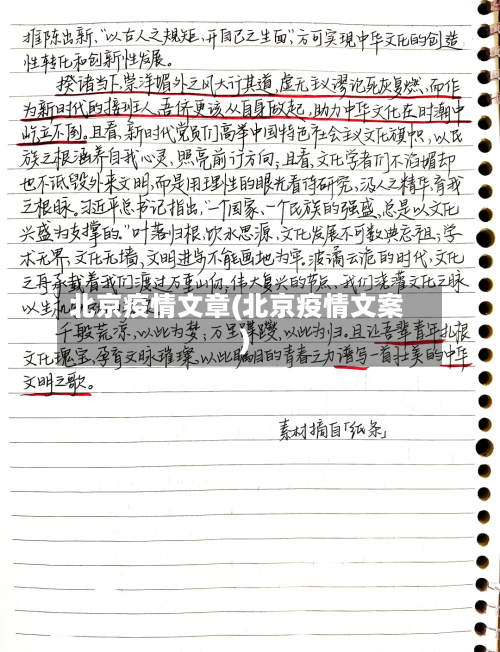 推陈出新、“以古人之规矩,开自己之生面”,方可实现中华文化的创造
性转化和创新性发展。
揆诸当下,崇洋媚外之风大行其道,虚无主义谬论死灰复燃,而作
为新时代的接班人,吾侪更该从自身做起,助力中华文化在时潮中
屹立不倒。且看,新时代党员们高举中国特色社会主义文化旗帜,以民
族之根涵养自我心灵,照亮前行方向;且看,文化学者们不谄媚却
也不诋毁外来文明,而是用理性的眼光看待研究,汲人之精华,育我
之根脉。习近平总书记指出,“一个国家、一个民族的强盛,总是以文化
兴盛为支撑的。”叶落归根,饮水思源,文化发展不可数典忘祖;学
术无界,文化无墙,文明进步不能画地为牢。波谲云诡的时代,文化
之舟承载着我们渡过万重山仞,伟大复兴的节点,我们老藩文化之脉
以生
北京疫情文章(北京疫情文案
)
千般荒凉,以此为梦;万里蹀躞,以此为归。且让吾辈青年扎根
文化瑰宝,孕育文脉璀璨,以此瞩目的青春之力谱写一首壮美的中华
文明之歌。
素材摘自「纸条」